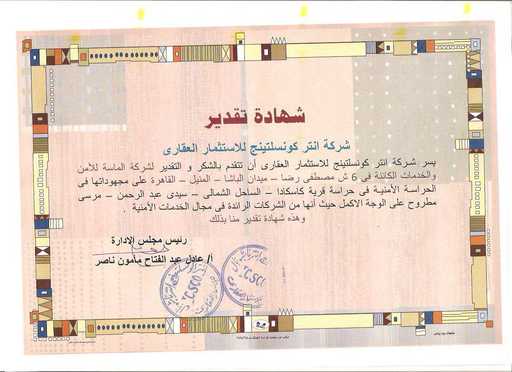 شهادة تقدير
شركة انتر كونسلتينج للاستثمار العقارى
يسر شركة إنتر كونسلتينج للاستثمار العقارى أن تتقدم بالشكر و التقدير لشركة الماسة للأمن
والخدمات الكائنة فى 6 ش مصطفى رضا – ميدان الباشا – المنيل – القاهرة على مجهوداتها فى
الحراسة الأمنية فى حراسة قرية كاسكادا – الساحل الشمالى – سيدى عبد الرحمن – مرسى
مطروح على الوجة الاكمل حيث أنها من الشركات الرائدة فى مجال الخدمات الأمنية .
وهذه شهادة تقدير منا بذلك
رئيس مجلس الإدارة
أ/ عادل عبد الفتاح مأمون ناصر